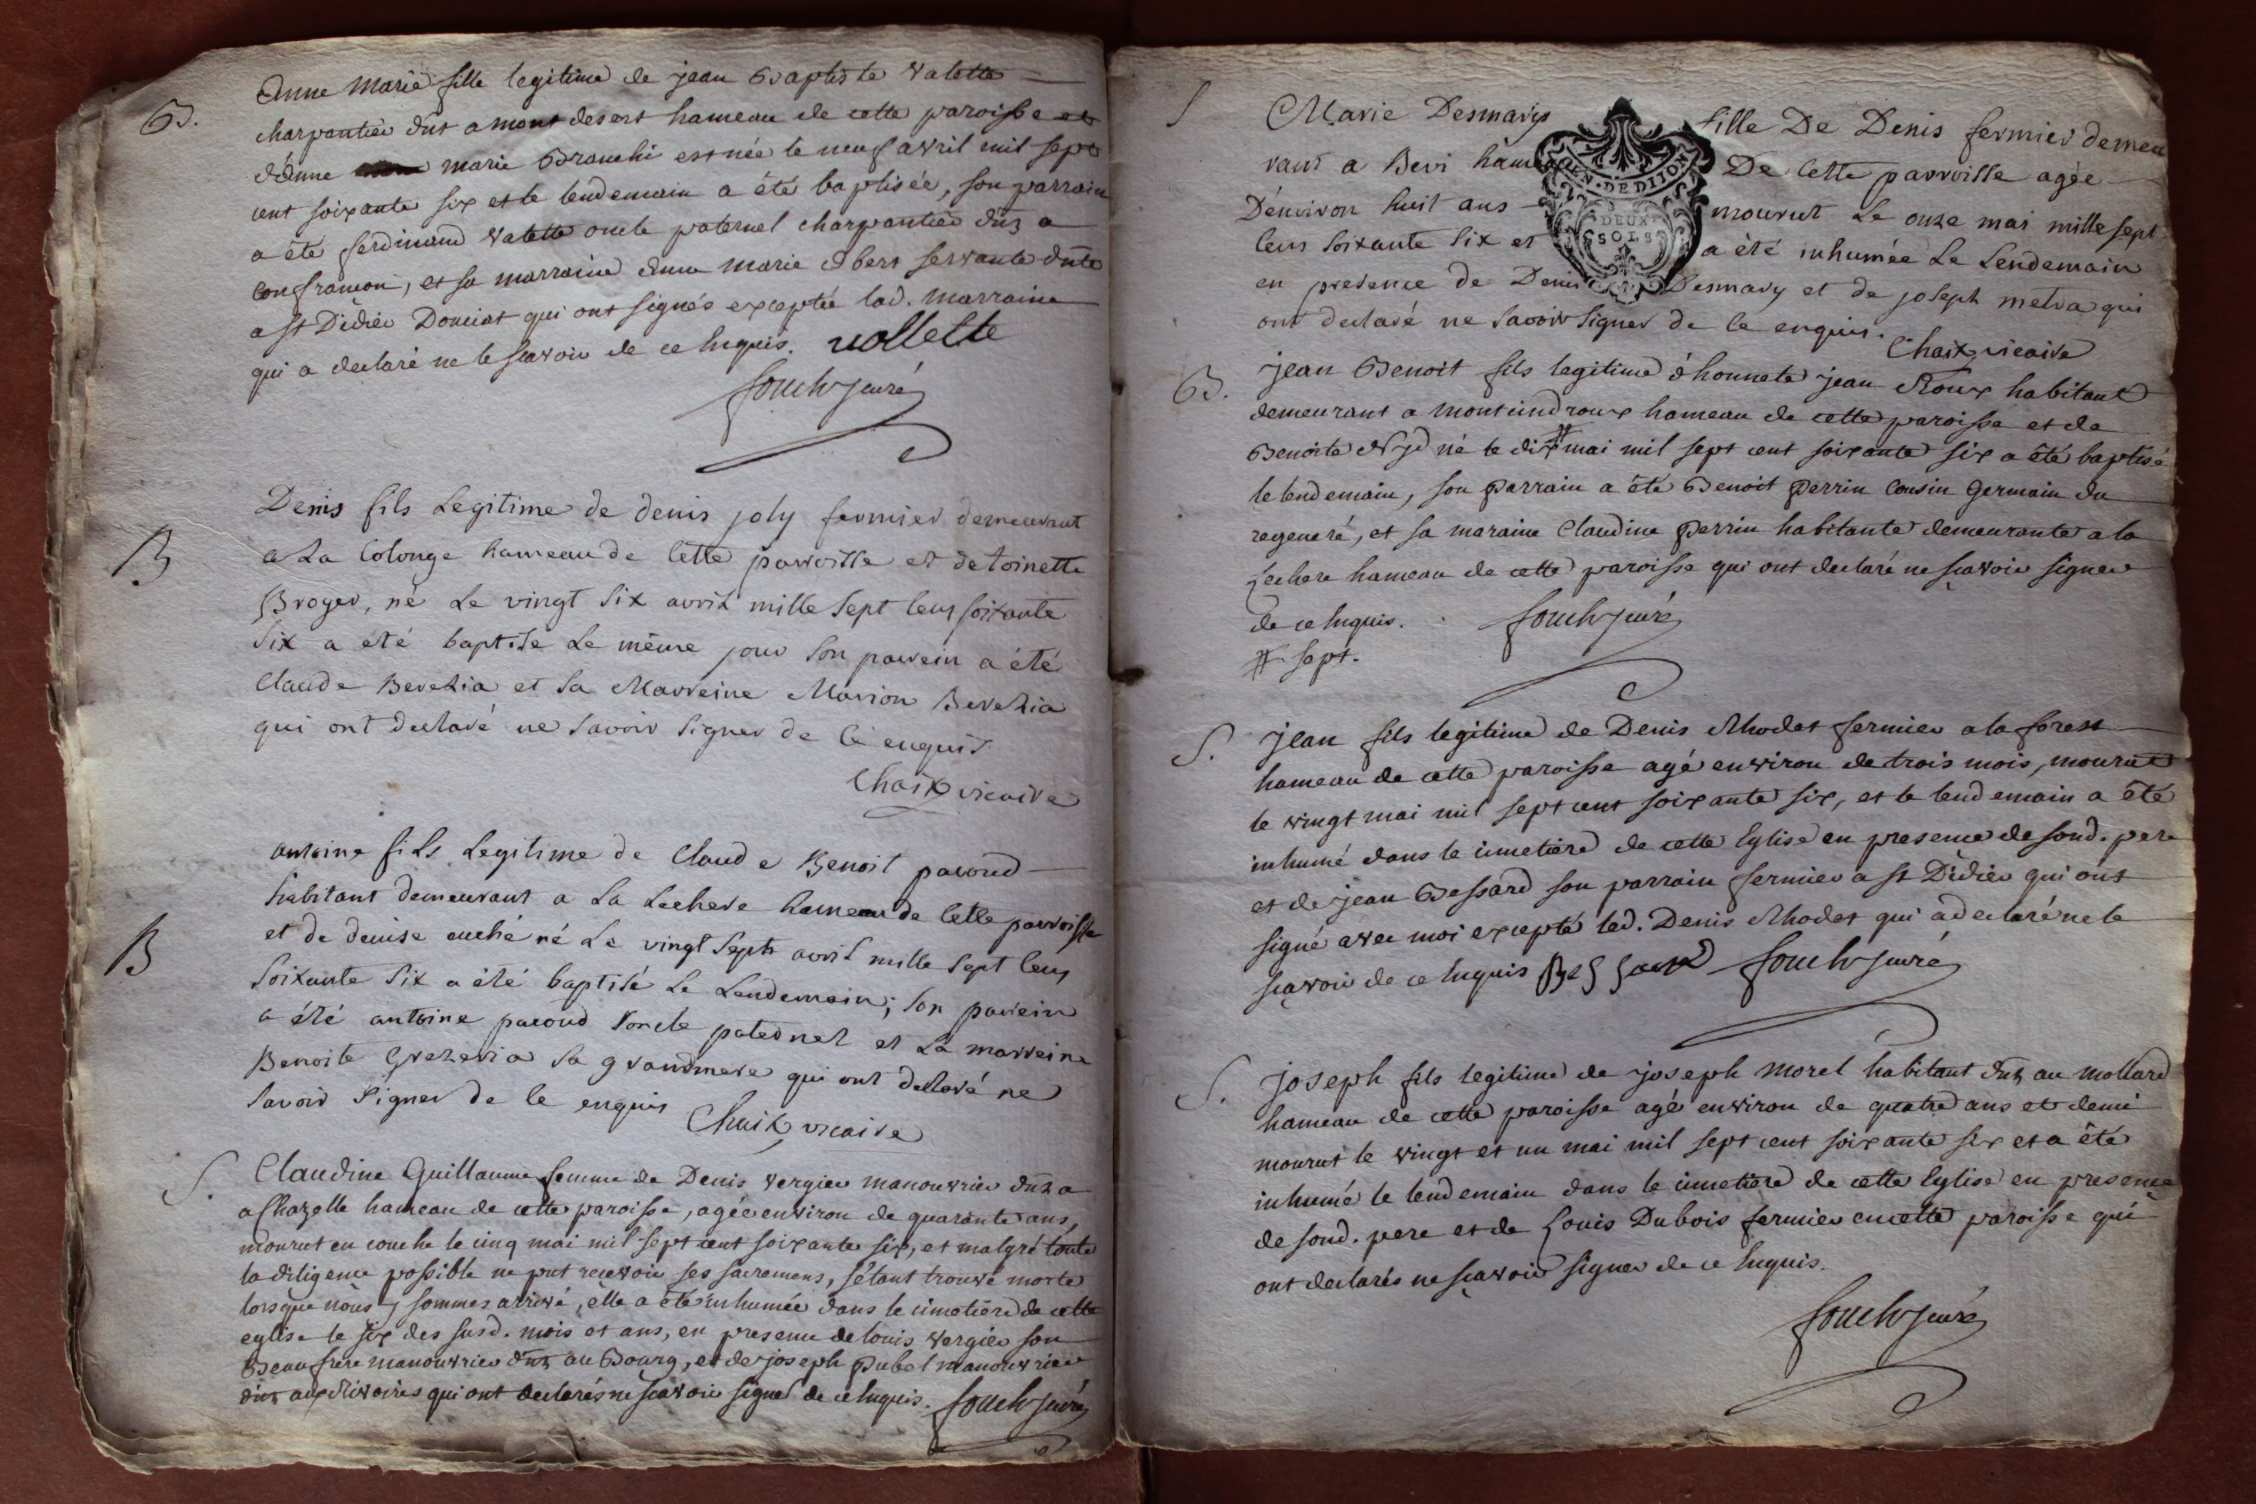 B.
Anne Marie fille legitime de jean Baptiste Valette
charpantier dnt a mont desert hameau de cette paroisse et
d'Anne marie Branchi est née le neuf avril mil sept
cent soixante six et le lendemain a été baptisée, son parrain
a été ferdinand Valette oncle paternel charpantier dnt a
confrancon, et sa marraine Anne Marie Obert servante dnte
a St Didier Donciat qui ont signés exceptée lad. marraine
qui a declaré ne le scavoir de ce Enquis. vollette
fouch curé
B
Denis fils Legitime de denis joly fermier demeurant
a La Colonge hameau de cette parroisse et de toinette
Broyer, né Le vingt six avril mille sept cens soixante
six a été baptisé Le même jour son parrein a été
Claude Berezia et sa Marreine Marion Berezia
qui ont declaré ne savoir signer de ce enquis
Chaix vicaire
B
antoine fils Legitime de Claude Benoit pacoud
habitant demeurant a La Lechere hameau de cette parroisse
et de denise euché né Le vingt sept avril mille sept cens
soixante six a été baptisé Le Lendemain; son parrein
a été antoine pacoud l'oncle paternel et La marreine
Benoite Grezeria sa grandmere qui ont declaré ne
savoir signer de ce enquis Chaix vicaire
S.
Claudine Guillaume femme de Denis Vergier manouvrier dnt a
a Chazelle hameau de cette paroisse, agée environ de quarante ans,
mourut en couche le cinq mai mil sept cent soixante six, et malgré toute
la diligence possible ne put recevoir ses sacremens, s'étant trouvé morte
lorsque nous y sommes arrivé, elle a été inhumée dans le cimetière de cette
eglise le six des susd. mois et ans, en presence de louis Vergier son
Beaufrere manouvrier dnt au Bourg, et de joseph pubel manouvrier
dnt aux Rivoires qui ont declarés ne scavoir signer de ce Enquis. fouch curé
S
Marie Desmarys fille De Denis fermier demeu
rant a Bevi hameau De cette parroisse agée
D'environ huit ans mourut Le onze mai mille sept
cens soixante six et a été inhumée Le Lendemain
en presence de Denis Desmary et de joseph metra qui
ont declaré ne savoir signer de ce enquis.
Chaix vicaire
GEN. DE DIJON
DEUX
SOLS
B.
jean Benoit fils legitime d'honnete jean Roux habitant
demeurant a montcindroux hameau de cette paroisse et de
Benoite Nyd né le dix # mai mil sept cent soixante six a été baptisé
le lendemain, son parrain a été Benoit perrin Cousin Germain du
regeneré, et sa maraine Claudine perrin habitante demeurante a la
Lechere hameau de cette paroisse qui ont declaré ne scavoir signer
de ce Enquis. fouch curé
# sept.
S.
jean fils legitime de Denis Rhodet fermier a la forest
hameau de cette paroisse agé environ de trois mois, mourut
le vingt mai mil sept cent soixante six, et le lendemain a été
inhumé dans le cimetière de cette Eglise en presence de sond. pere
et de jean Bessard son parrain fermier a St Didier qui ont
signé avec moi excepté led. Denis Rhodet qui a declaré ne le
scavoir de ce Enquis Bessard fouch curé
S.
joseph fils legitime de joseph morel habitant dnt au mollard
hameau de cette paroisse agé environ de quatre ans et demi
mourut le vingt et un mai mil sept cent soixante six et a été
inhumé le lendemain dans le cimetière de cette Eglise en presence
de sond. pere et de Louis Dubois fermier en cette paroisse qui
ont declarés ne scavoir signer de ce Enquis.
fouch curé